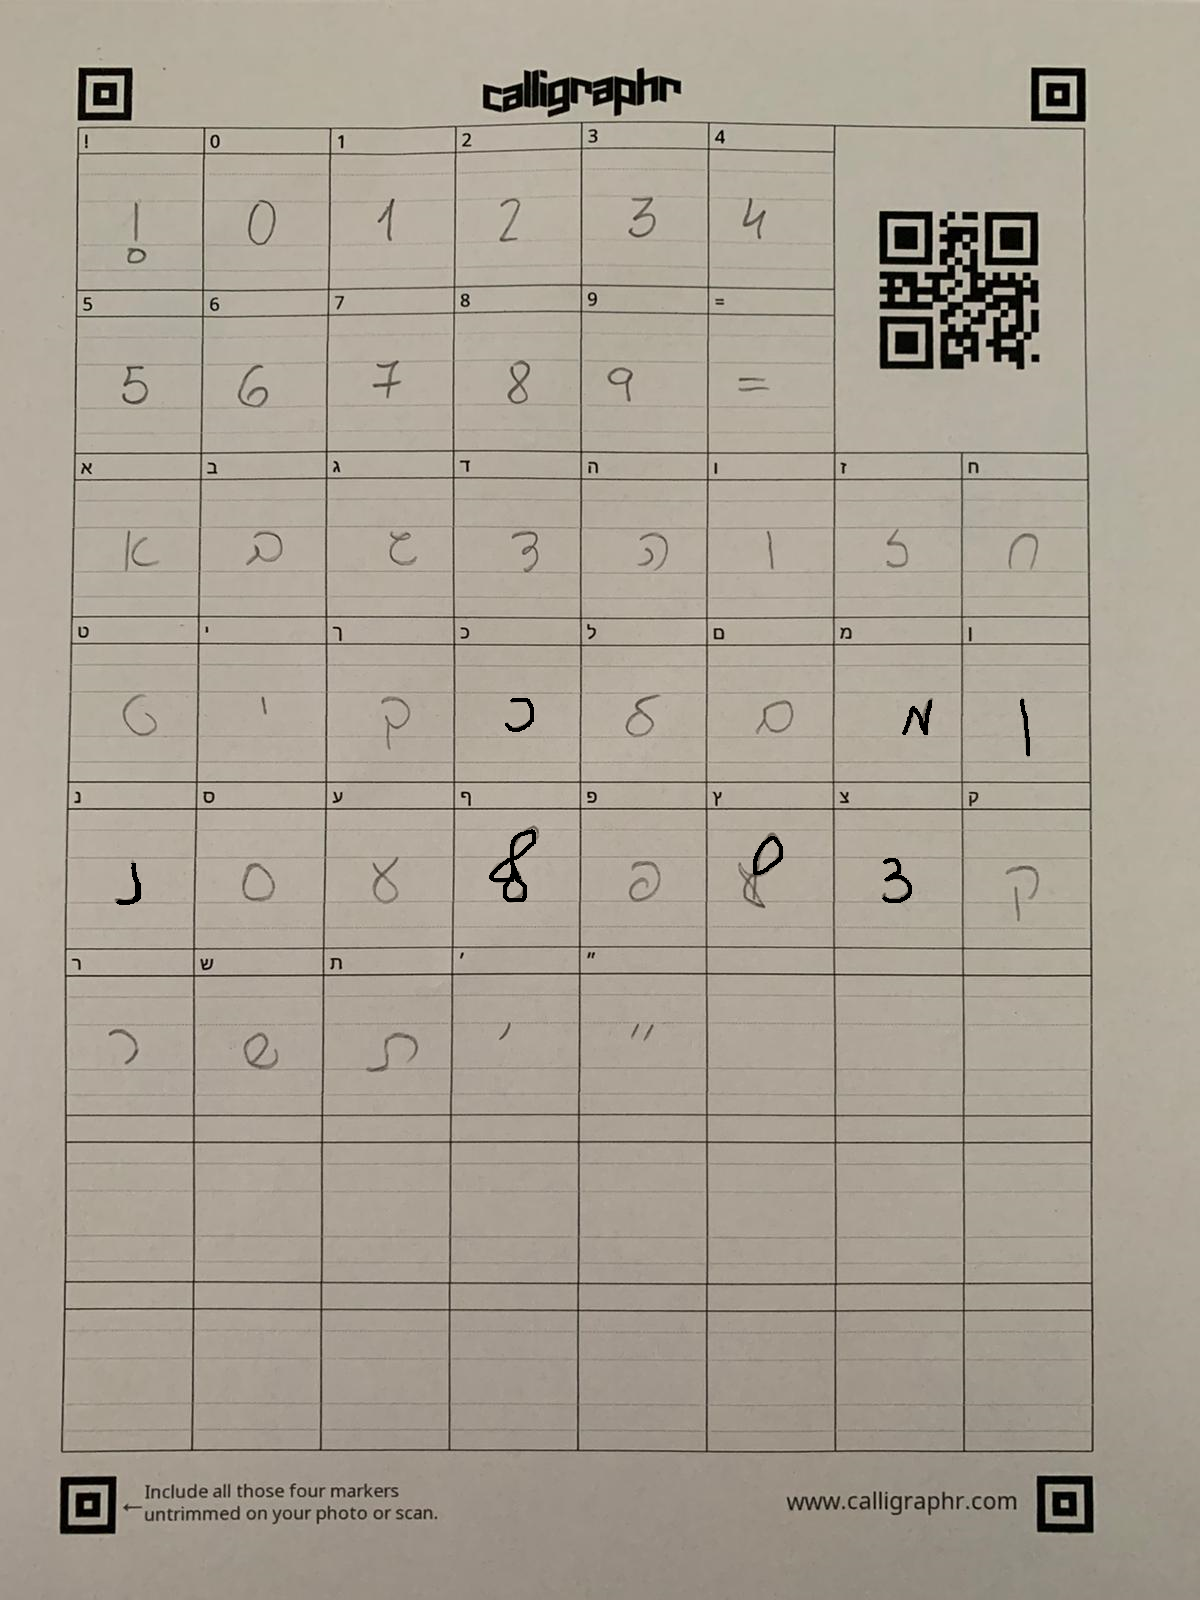 calligraphr
! 0 1 2 3 4
! 0 1 2 3 4
5 6 7 8 9 =
5 6 7 8 9 =
א ב ג ד ה ו ז ח
א ב ג ד ה ו ז ח
ט י ך כ ל ם מ ן
ט י ך כ ל ם מ ן
נ ס ע ף פ ץ צ ק
נ ס ע ף פ ץ צ ק
ר ש ת ׳ ״
ר ש ת ׳ ״
Include all those four markers
←untrimmed on your photo or scan.
www.calligraphr.com